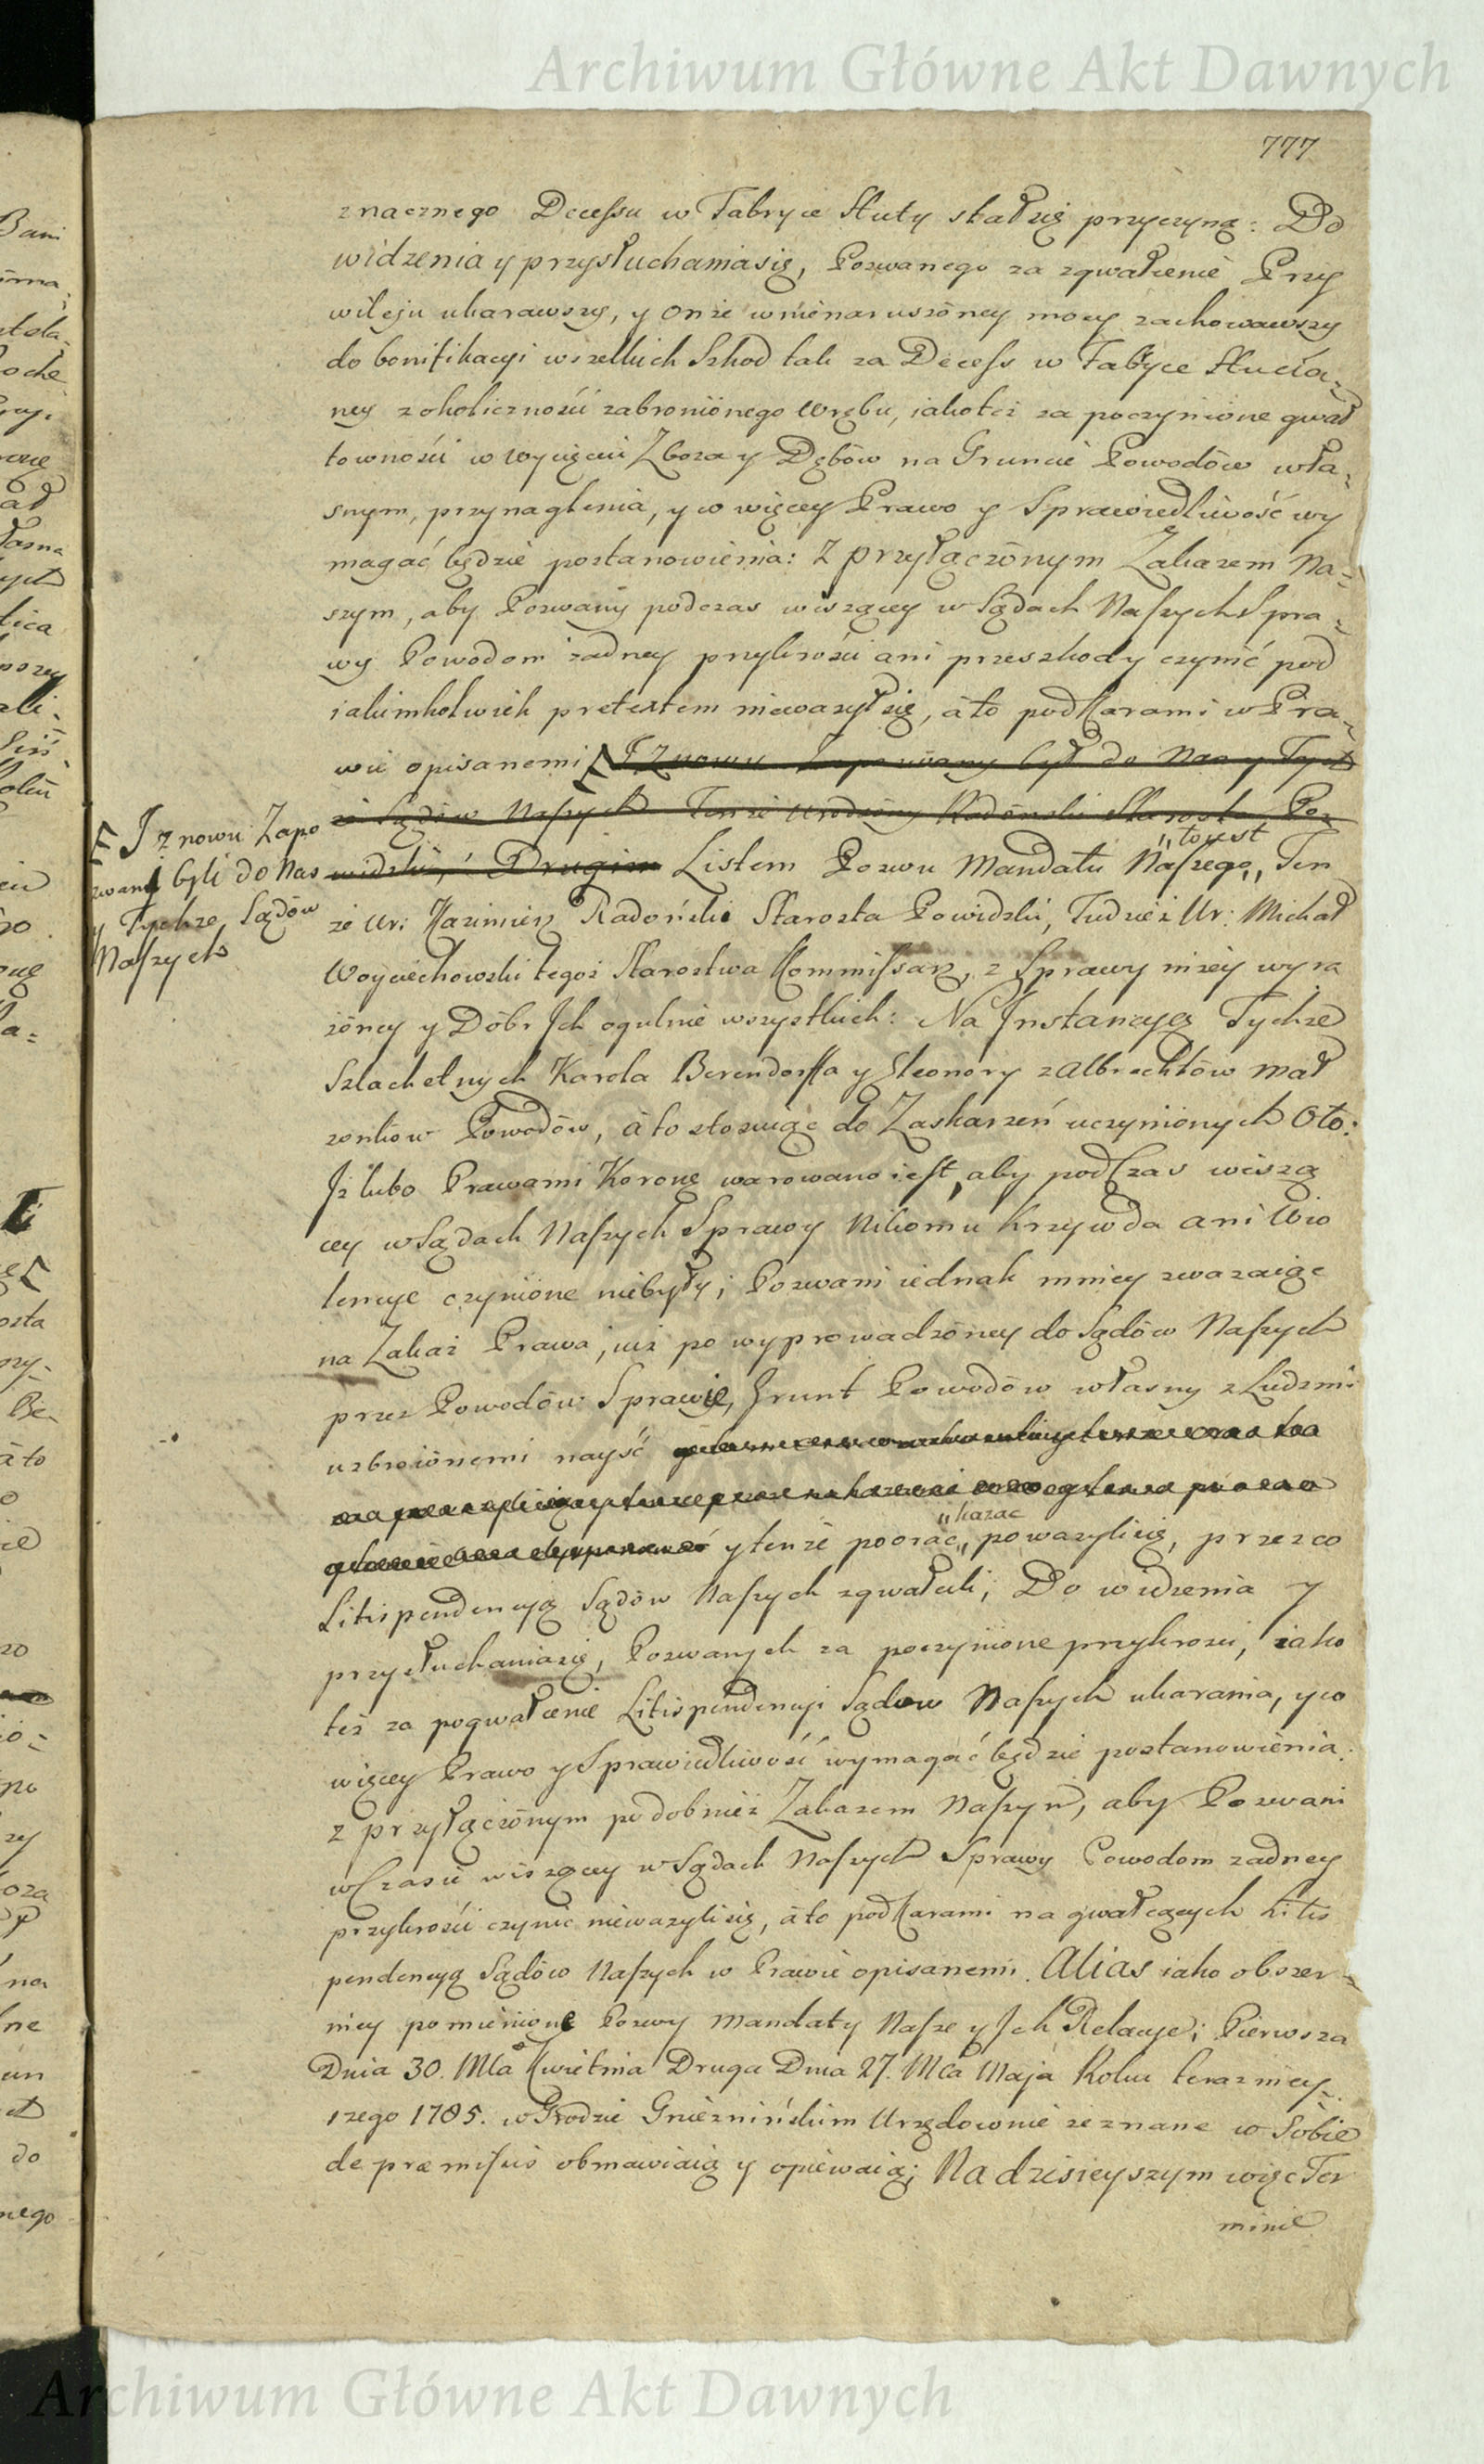 Archiwum Główne Akt Dawnych
777
znacznego Decessu w Fabryce Huty stał się przyczyną: Do
widzenia y przysłuchania się, Pozwanego za zgwałcenie Przy
wileju ukarawszy, y onże w nienaruszōney mocy zachowawszy
do bonifikacyi wszelkich Szkod tak za Decess w Fabryce Hucia=
ney z okoliczności zabroniōnego Wrębu, iakoteż za poczynione gwał
towności w wycięciu Zboza y Dębōw na Gruncie Powodōw wła=
snym, przynaglenia, y co więcey Prawo y Sprawiedliwość wy
magać będzie postanowienia: z przyłączōnym Zakazem Na=
szym, aby Pozwany podczas wiszącey w Sądach Naszych Spra=
wy Powodom żadney przykrości ani przeszkody czynić pod
iakimkolwiek pretextem nieważył się, à to pod Karami w Pra=
wie opisanemi I znowu Zapozwany był do Nas y Tych
że Sądōw Naszych Tenże Urodzōny Radōnski Starosta Po
widzki, Drugim Listem Pozwu Mandatu Naszego,, Ten
„to iest
I znowu Zapo
zwani byli do Nas
y Tychże Sądōw
Naszych
że Ur: Kazimierz Radoński Starosta Powidzki, Tudzież Ur: Michał
Woyciechowski tegoż Starostwa Kommissarz, z Sprawy niżey wyra
żōney y Dōbr Ich ogulnie wszystkich: Na Instancyą Tychże
Szlachetnych Karola Berendorffa y Eleonory z Albrechtōw mał
żonkōw Powodōw, à to stosuiąc do Zaskarzeń uczynionych Oto:
Iż lubo Prawami Koronę warowano iest, aby pod Czas wiszą
cey w Sądach Naszych Sprawy Nikomu Krzywda ani Wio
lencye czyniōne niebyły; Pozwani iednak mniey zwazaiąc
na Zakaz Prawa, iuż po wyprowadzōney do Sądōw Naszych
przez Powodōw Sprawie, Grunt Powodōw własny z Ludzmi
uzbroiōnemi nayść
y tenże poorać,, poważyli się, przez co
„kazac
Litispendencyą Sądōw Naszych zgwałcili; Do widzenia y
przysłuchania się, Pozwanych za poczynione przykrości, iako
też za pogwałcenie Litispendencyi Sądow Naszych ukarania, y co
więcey Prawo y Sprawiedliwość wymagać będzie postanowienia:
z przyłączōnym podobnież Zakazem Naszym, aby Pozwani
w Czasie wiszącey w Sądach Naszych Sprawy Powodom zadney
przykrości czynic nieważyli się, à to pod Karami na gwałcących Litis
pendencyą Sądōw Naszych w Prawie opisanemi. Alias iako obszer=
niey pomienione Pozwy Mandaty Nasze y Ich Relacye; Pierwsza
Dnia 30. Mca Kwietnia Druga Dnia 27. Mca Maja Roku terazniey=
szego 1785. w Grodzie Gnieznińskim Urzędownie zeznane w Sobie
de præmissis obmawiaią y opiewaią; Na dzisieyszym więc Ter
minie
Archiwum Główne Akt Dawnych